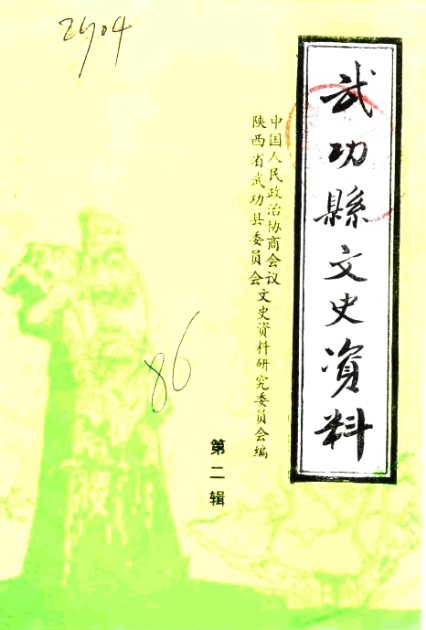 2704
武功縣文史资料
中国人民政治协商会议
陕西省武功县委员会文史资料研究委员会编
第二辑
86